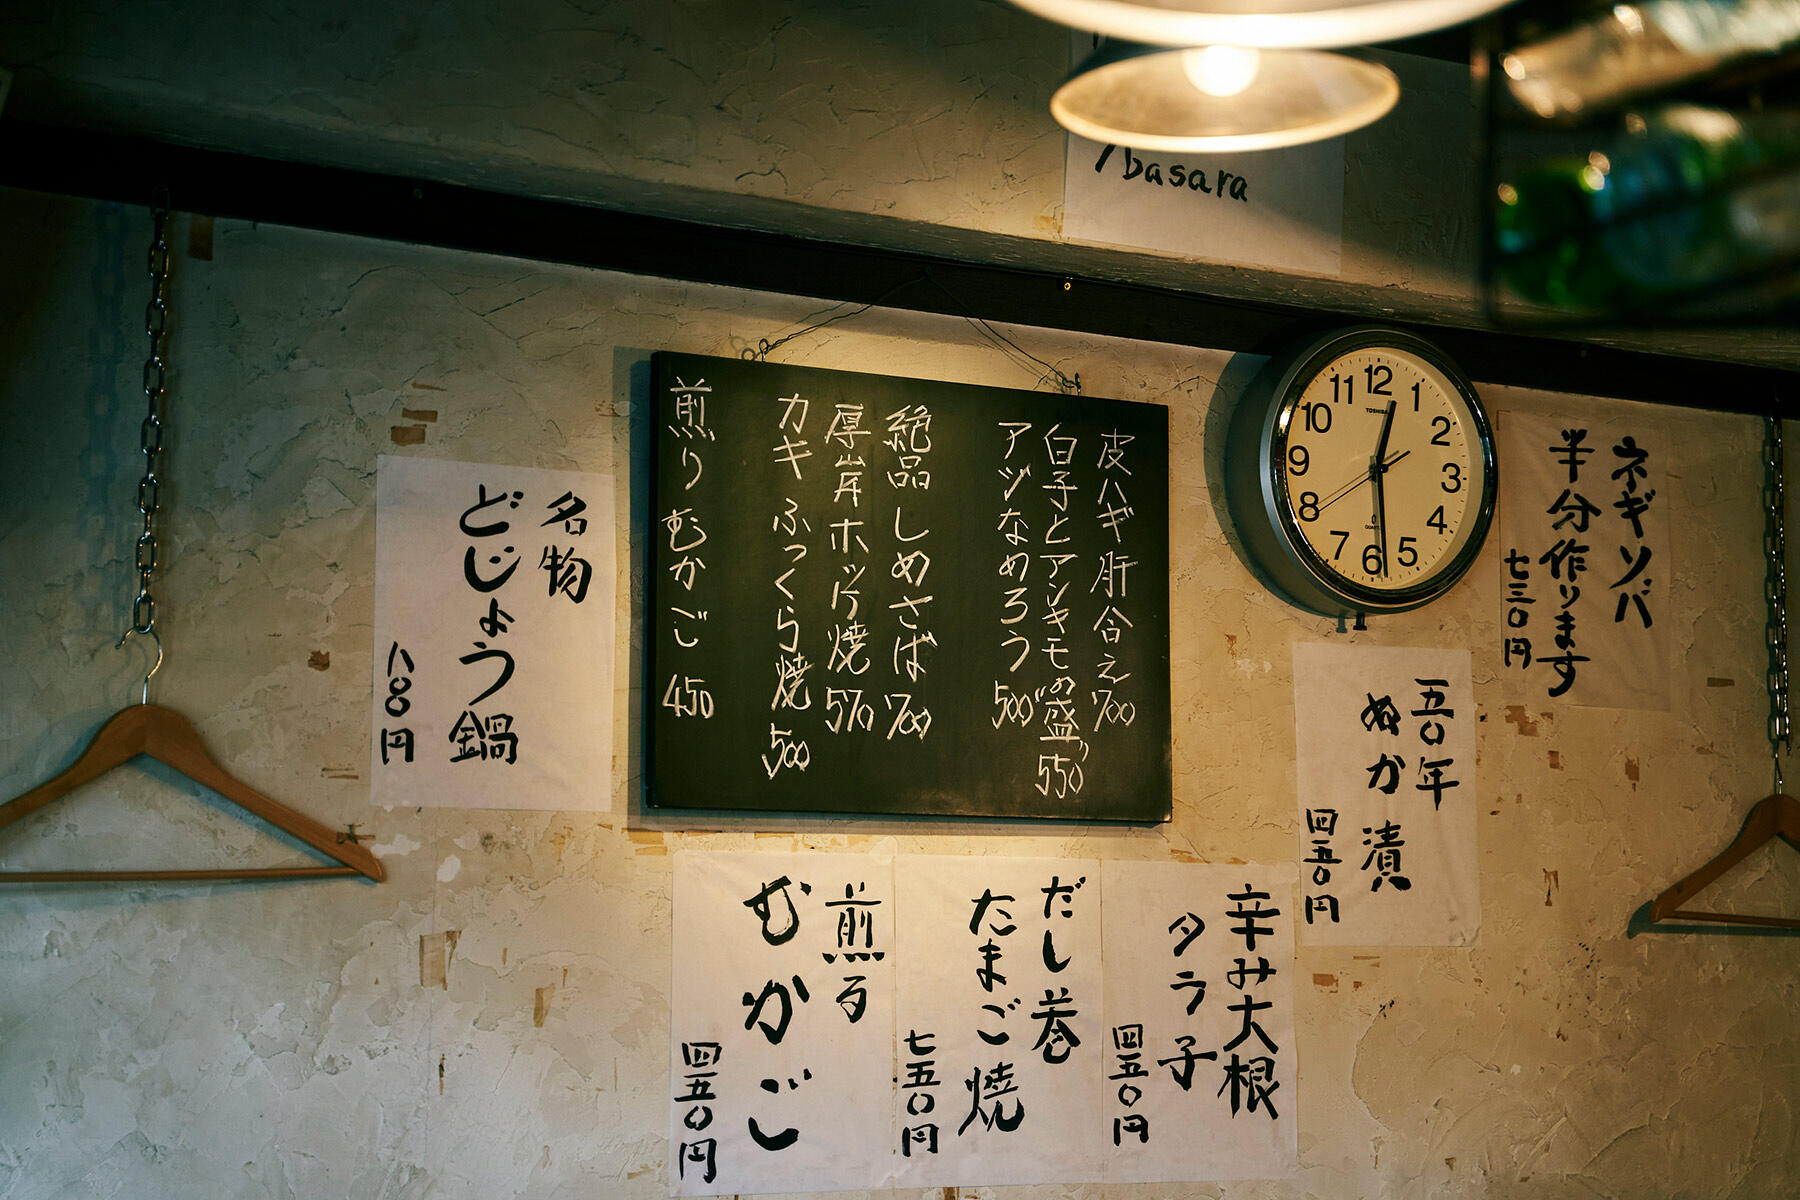 basara
ネギソバ
半分作ります
七三〇円
五〇年
ぬか漬
四五〇円
皮ハギ肝合え 700
白子とアンキモの"盛" 550
アジなめろう 500
絶品 しめさば 700
厚岸ホッケ焼 570
カキ ふっくら焼 500
煎りむかご 450
名物
どじょう鍋
八〇〇円
12
1
2
3
4
5
6
7
8
9
10
11
TOSHIBA
QUARTZ
辛み大根
タラ子
四五〇円
だし巻
たまご焼
七五〇円
煎る
むかご
四五〇円